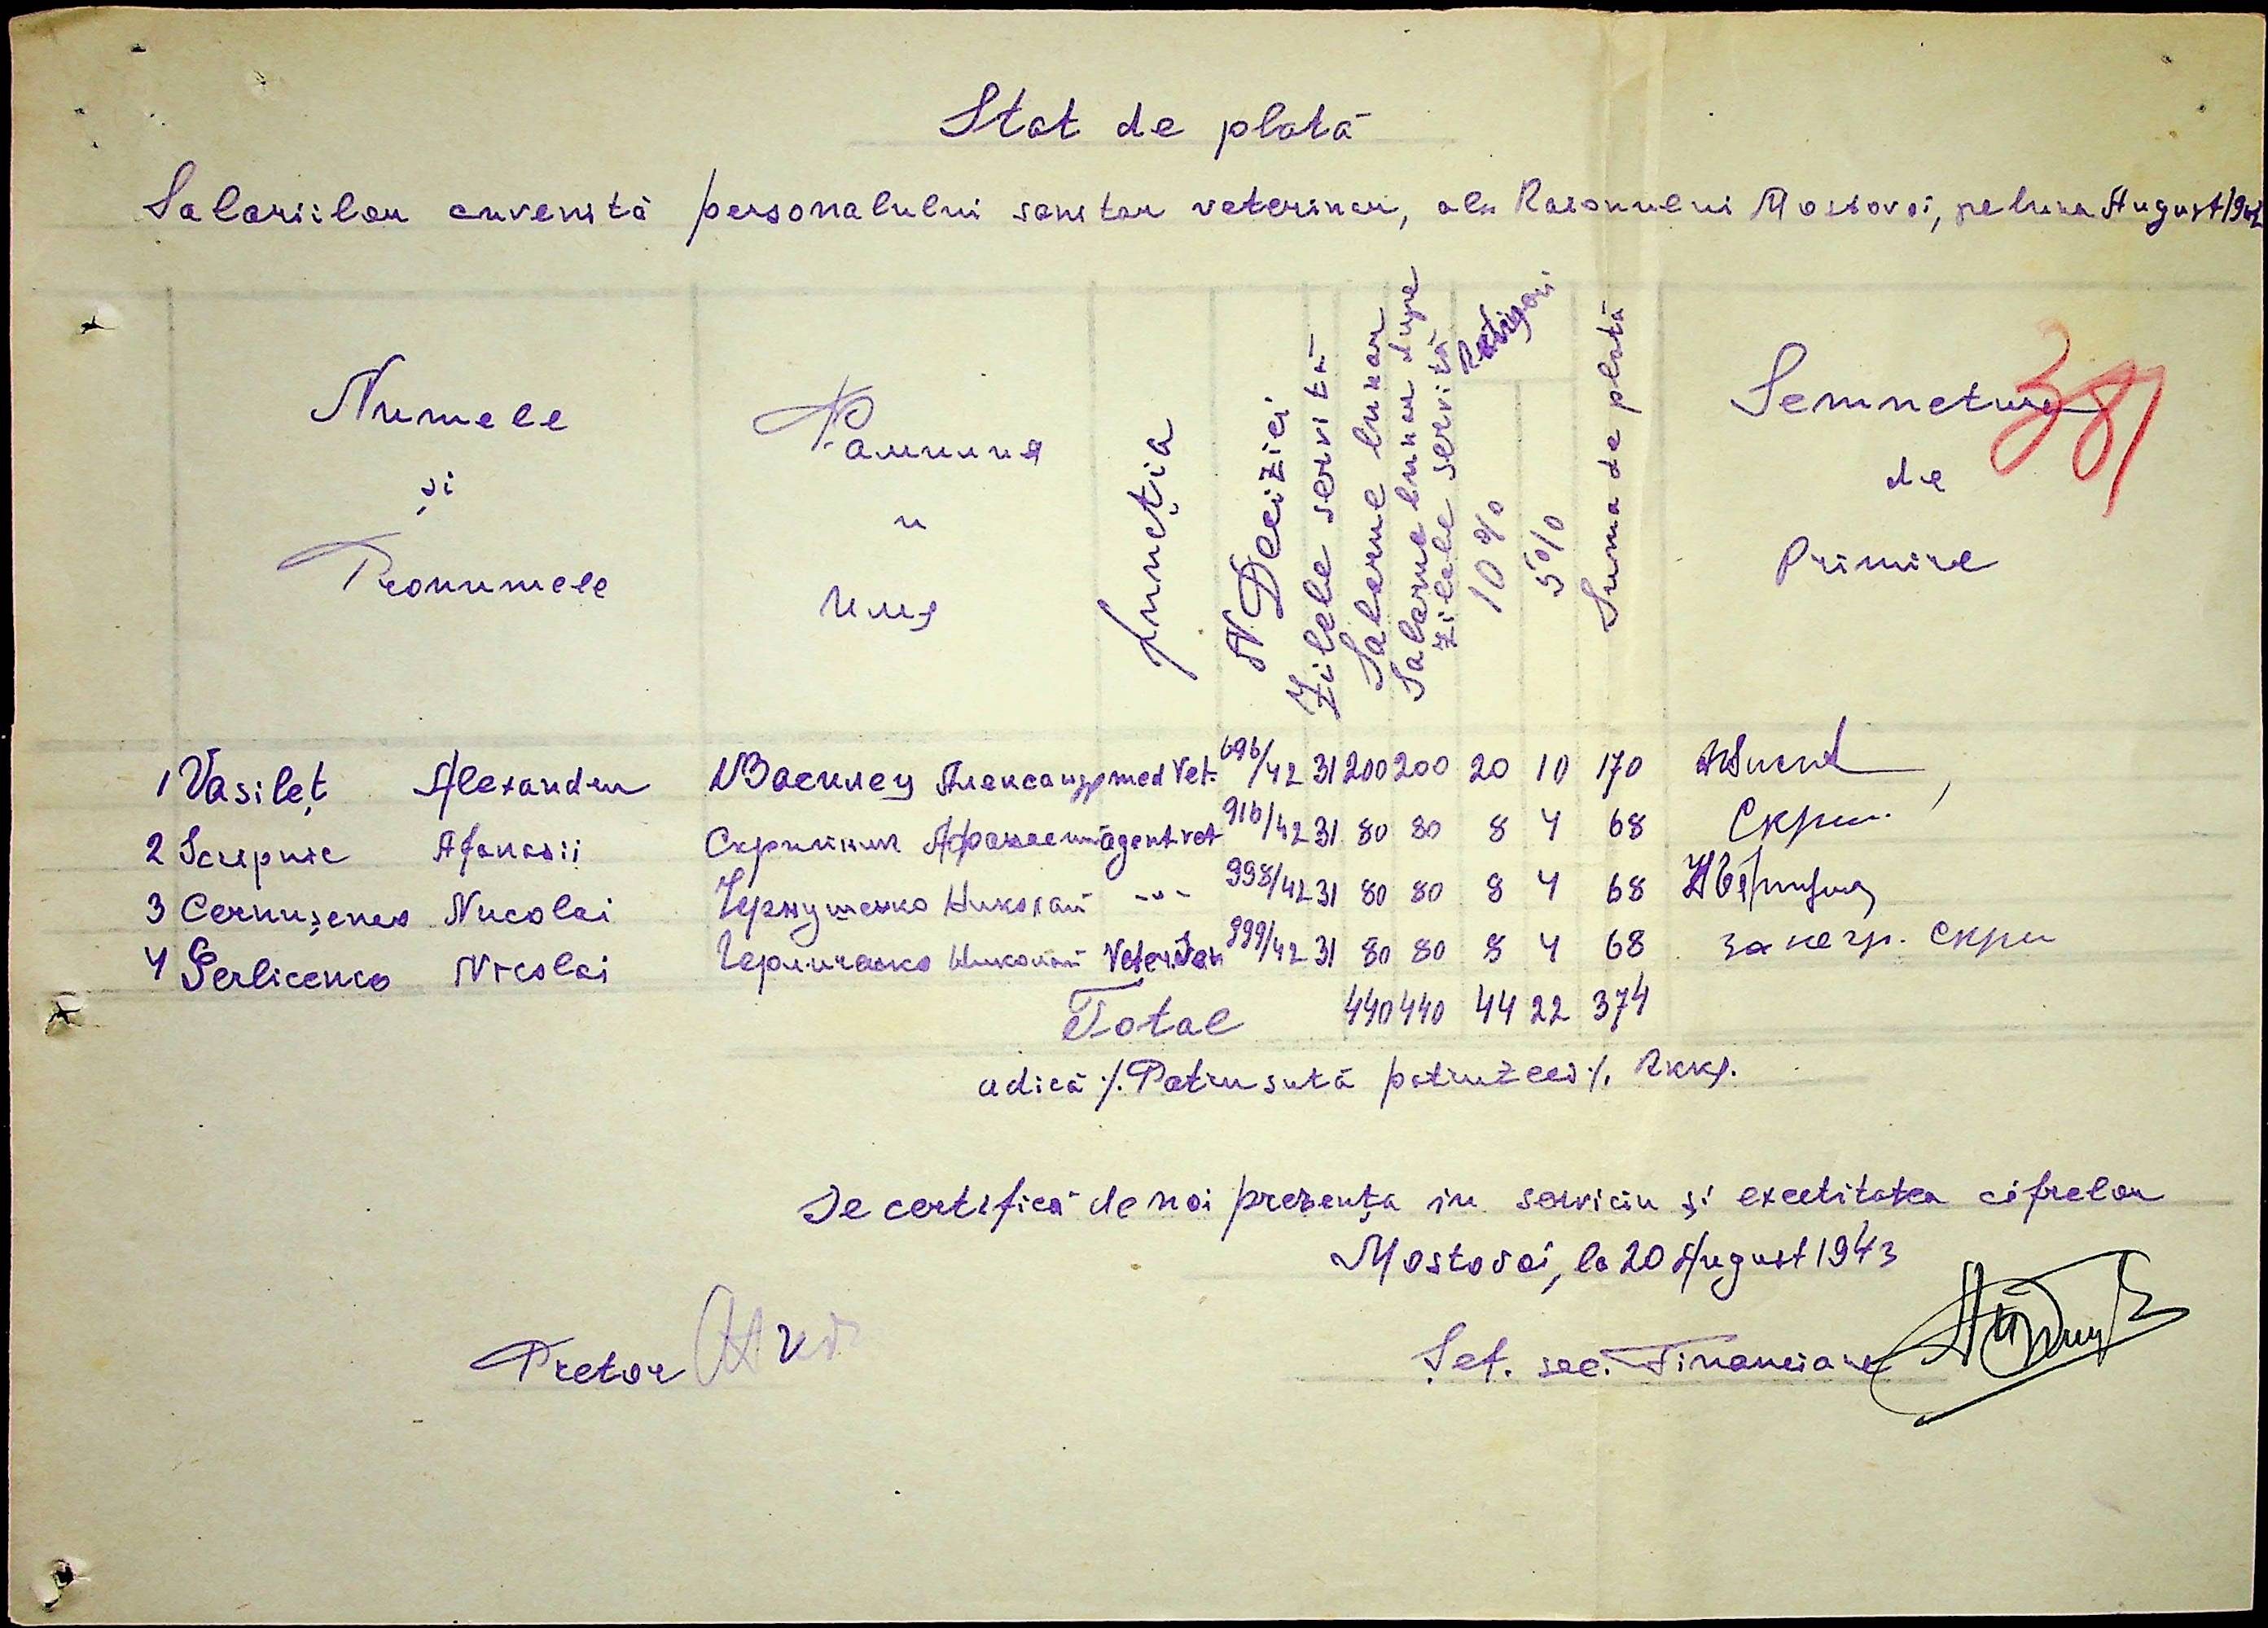 Stat de plată
Salariilor cuvenită personalului sanitar veterinar, ale Raionului Mostovoi, pe luna August 194
381
Numele
și
Pronumele
Фамилия
и
Имя
funcția
N Deciziei
Zilele servită
Salarul lunar
Salarul lunar dupe
zilele servită
Rețineri
10%
5%
Suma de plată
Semnetura
de
Primire
1 Vasileț Alexandru Василец Александр med Vet. 696/42 31 200 200 20 10 170
2 Scripnic Afanasii Скрипник Афанасий agent vet 916/42 31 80 80 8 4 68 Скрип
3 Cernușenco Nicolai Чернушенко Николай -"- 998/42 31 80 80 8 4 68
4 Serlicenco Nicolai Черличенко Николай Veterinar 999/42 31 80 80 8 4 68 за негр. Скрип
Total 440 440 44 22 374
adică ./. Patru sută patruzeci ./. Rkks.
Se certifică de noi prezența în serviciu și exectitatea cifrelor
Mostovoi, la 20 August 1943
Pretor
Șef. sec. Financiare